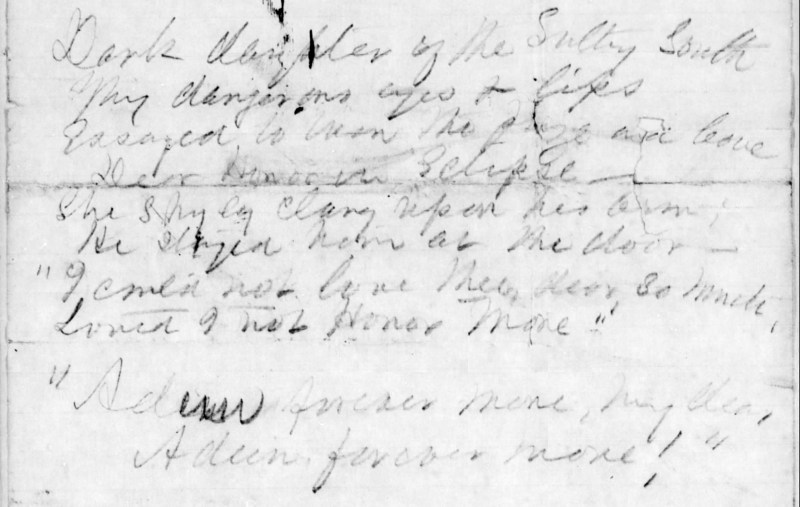 Dark daughter of the Sultry South
Thy dangerous eyes & lips
Essayed to win the prize and leave
Dear Honor in Eclipse —
She shyly clung upon his arm,
He stayed him at the door —
"I could not love thee, dear, so much,
Loved I not Honor More"
"Adieu forever more, my dear,
Adieu forever more!"